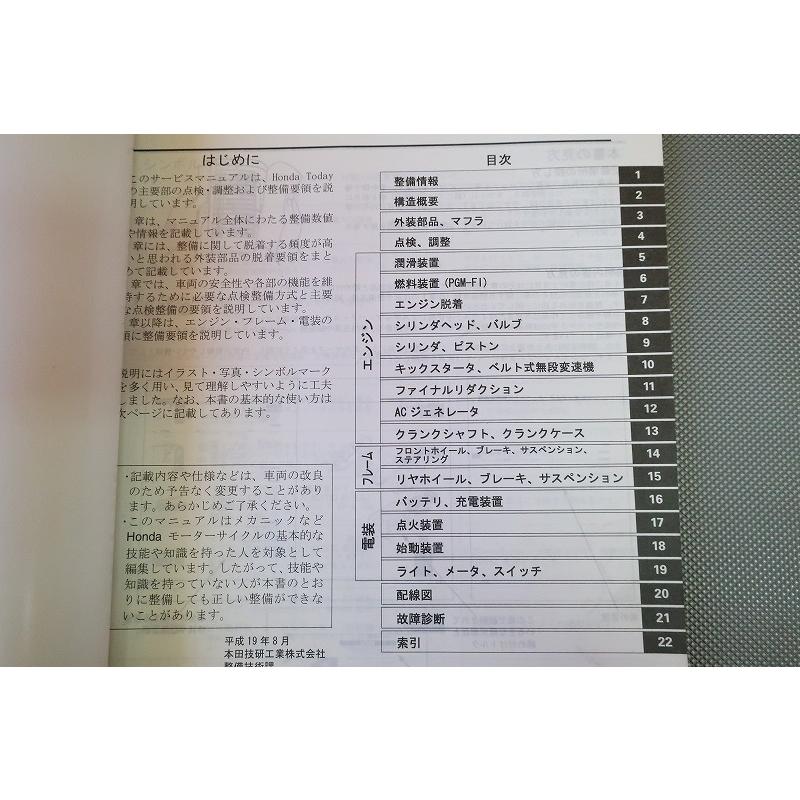 はじめに
このサービスマニュアルは、Honda Today
の主要部の点検・調整および整備要領を説
明しています。
章は、マニュアル全体にわたる整備数値
や情報を記載しています。
章には、整備に関して脱着する頻度が高
いと思われる外装部品の脱着要領をまと
めて記載しています。
章では、車両の安全性や各部の機能を維
持するために必要な点検整備方式と主要
な点検整備の要領を説明しています。
章以降は、エンジン・フレーム・電装の
順に整備要領を説明しています。
説明にはイラスト・写真・シンボルマーク
を多く用い、見て理解しやすいように工夫
しました。なお、本書の基本的な使い方は
次ページに記載してあります。
・記載内容や仕様などは、車両の改良
のため予告なく変更することがあり
ます。あらかじめご了承ください。
・このマニュアルはメカニックなど
Honda モーターサイクルの基本的な
技能や知識を持った人を対象として
編集しています。したがって、技能や
知識を持っていない人が本書のとお
りに整備しても正しい整備ができな
いことがあります。
平成19年8月
本田技研工業株式会社
整備技術課
目次
整備情報 1
構造概要 2
外装部品、マフラ 3
点検、調整 4
エンジン
潤滑装置 5
燃料装置(PGM-FI) 6
エンジン脱着 7
シリンダヘッド、バルブ 8
シリンダ、ピストン 9
キックスタータ、ベルト式無段変速機 10
ファイナルリダクション 11
ACジェネレータ 12
クランクシャフト、クランクケース 13
フレーム
フロントホイール、ブレーキ、サスペンション、
ステアリング 14
リヤホイール、ブレーキ、サスペンション 15
電装
バッテリ、充電装置 16
点火装置 17
始動装置 18
ライト、メータ、スイッチ 19
配線図 20
故障診断 21
索引 22